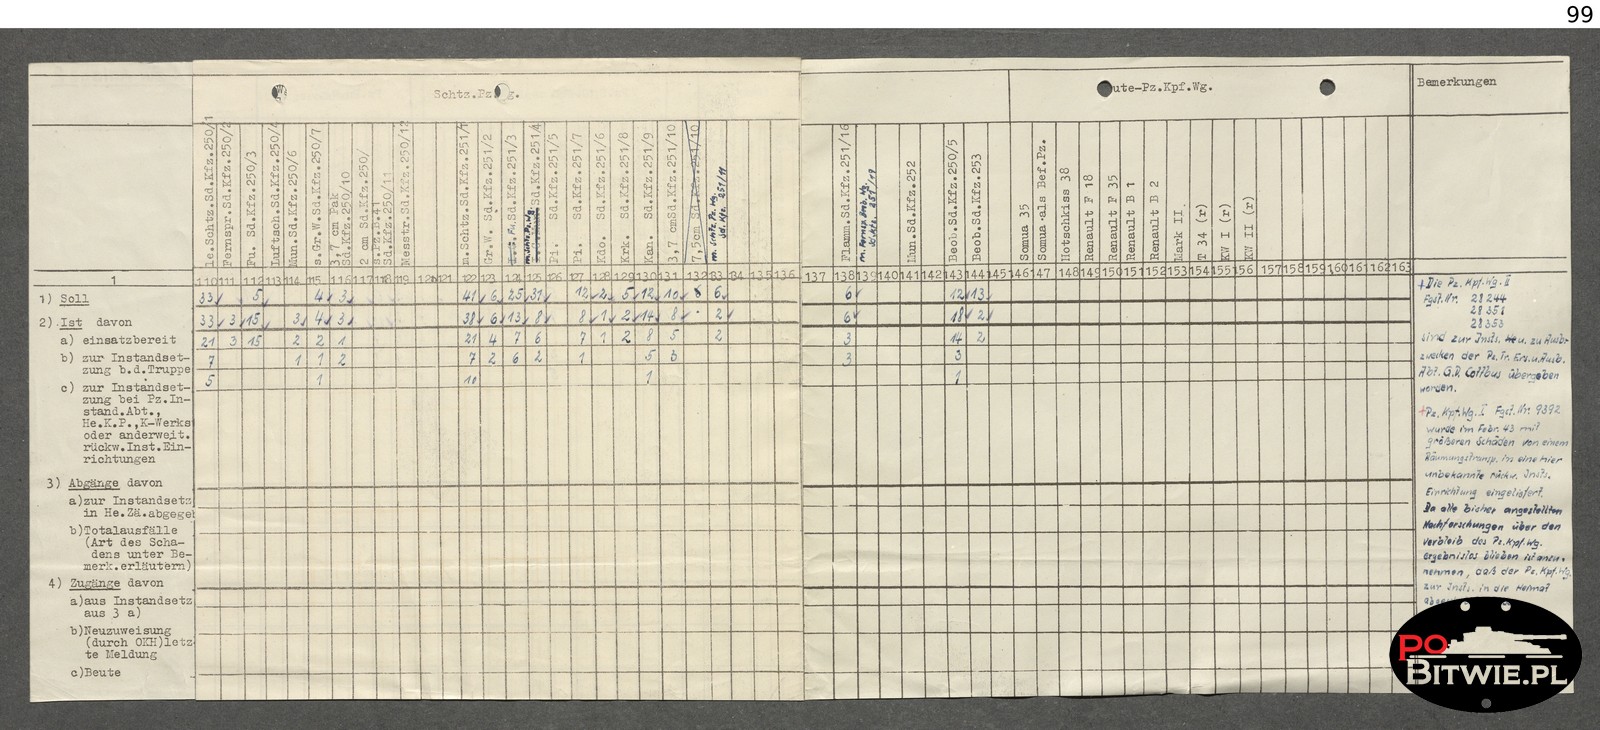 99
Schtz.Pz. g.
ute-Pz.Kpf.Wg.
Bemerkungen
le.Schtz.Sd.Kfz.250/1
Fernspr.Sd.Kfz.250/2
Fu. Sd.Kfz.250/3
Luftsch.Sd.Kfz.250/4
Mun.Sd.Kfz.250/6
s.Gr.W.Sd.Kfz.250/7
3,7 cm Pak
Sd.Kfz.250/10
2 cm Sd.Kfz.250/
s.Pz.B.41
Sd.Kfz.250/11
Messtr.Sd.Kfz.250/12
m.Schtz.Sd.Kfz.251/1
Gr.W. Sd.Kfz.251/2
Sd.Kfz.251/3
m. Schtz.Pz.Wg. Sd.Kfz.251/4
Pi. Sd.Kfz.251/5
Pi. Sd.Kfz.251/7
Kdo. Sd.Kfz.251/6
Krk. Sd.Kfz.251/8
Kan. Sd.Kfz.251/9
3,7 cmSd.Kfz.251/10
7,5cm Sd.Kfz.251/10
m. Schtz. Pz. Wg.
Sd. Kfz. 251/11
Flamm.Sd.Kfz.251/16
m. Fernsp. Betr. Wg.
Sd.Kfz. 251/19
Mun.Sd.Kfz.252
Beob.Sd.Kfz.250/5
Beob.Sd.Kfz.253
Somua 35
Somua als Bef.Pz.
Hotschkiss 38
Renault F 18
Renault F 35
Renault B 1
Renault B 2
Mark II
T 34 (r)
KW I (r)
KW II (r)
1 110 111 112 113 114 115 116 117 118 119 120 121 122 123 124 125 126 127 128 129 130 131 132 133 134 135 136 137 138 139 140 141 142 143 144 145 146 147 148 149 150 151 152 153 154 155 156 157 158 159 160 161 162 163
1) Soll 33 5 4 3 41 6 25 31 12 2 5 12 10 8 6 6 12 13
2) Ist davon 33 3 15 3 4 3 38 6 13 8 8 1 2 14 8 2 6 18 2
a) einsatzbereit 21 3 15 2 2 1 21 4 7 6 7 1 2 8 5 2 3 14 2
b) zur Instandset- 7 1 1 2 7 2 6 2 1 5 3 3 3
zung b.d.Truppe
5 1 10 1 1
c) zur Instandset-
zung bei Pz.In-
stand.Abt.,
He.K.P.,K-Werks
oder anderweit.
rückw.Inst.Ein-
richtungen
3) Abgänge davon
a)zur Instandsetz
in He.Zä.abgegeb
b)Totalausfälle
(Art des Scha-
dens unter Be-
merk.erläutern)
4) Zugänge davon
a)aus Instandsetz
aus 3 a)
b)Neuzuweisung
(durch OKH)letz-
te Meldung
c)Beute
+ Die Pz. Kpf. Wg. II
Fgst.Nr. 28244
28351
28353
sind zur Insts. zu Ausb.
zwecken der Pz. Tr. Ers.u.Ausb.
Abt. G.D. Cottbus übergeben
worden.
+Pz. Kpf. Wg. I Fgst.Nr. 9392
wurde im Febr. 43 mit
größeren Schäden von einem
Räumungstransp. in eine hier
unbekannte rückw. Insts.
Einrichtung eingeliefert.
Da alle bisher angestellten
Nachforschungen über den
Verbleib des Pz.Kpf.Wg.
ergebnislos blieben ist anzu-
nehmen, daß der Pz. Kpf. Wg.
zur Insts. in die Heimat
PO
BITWIE.PL